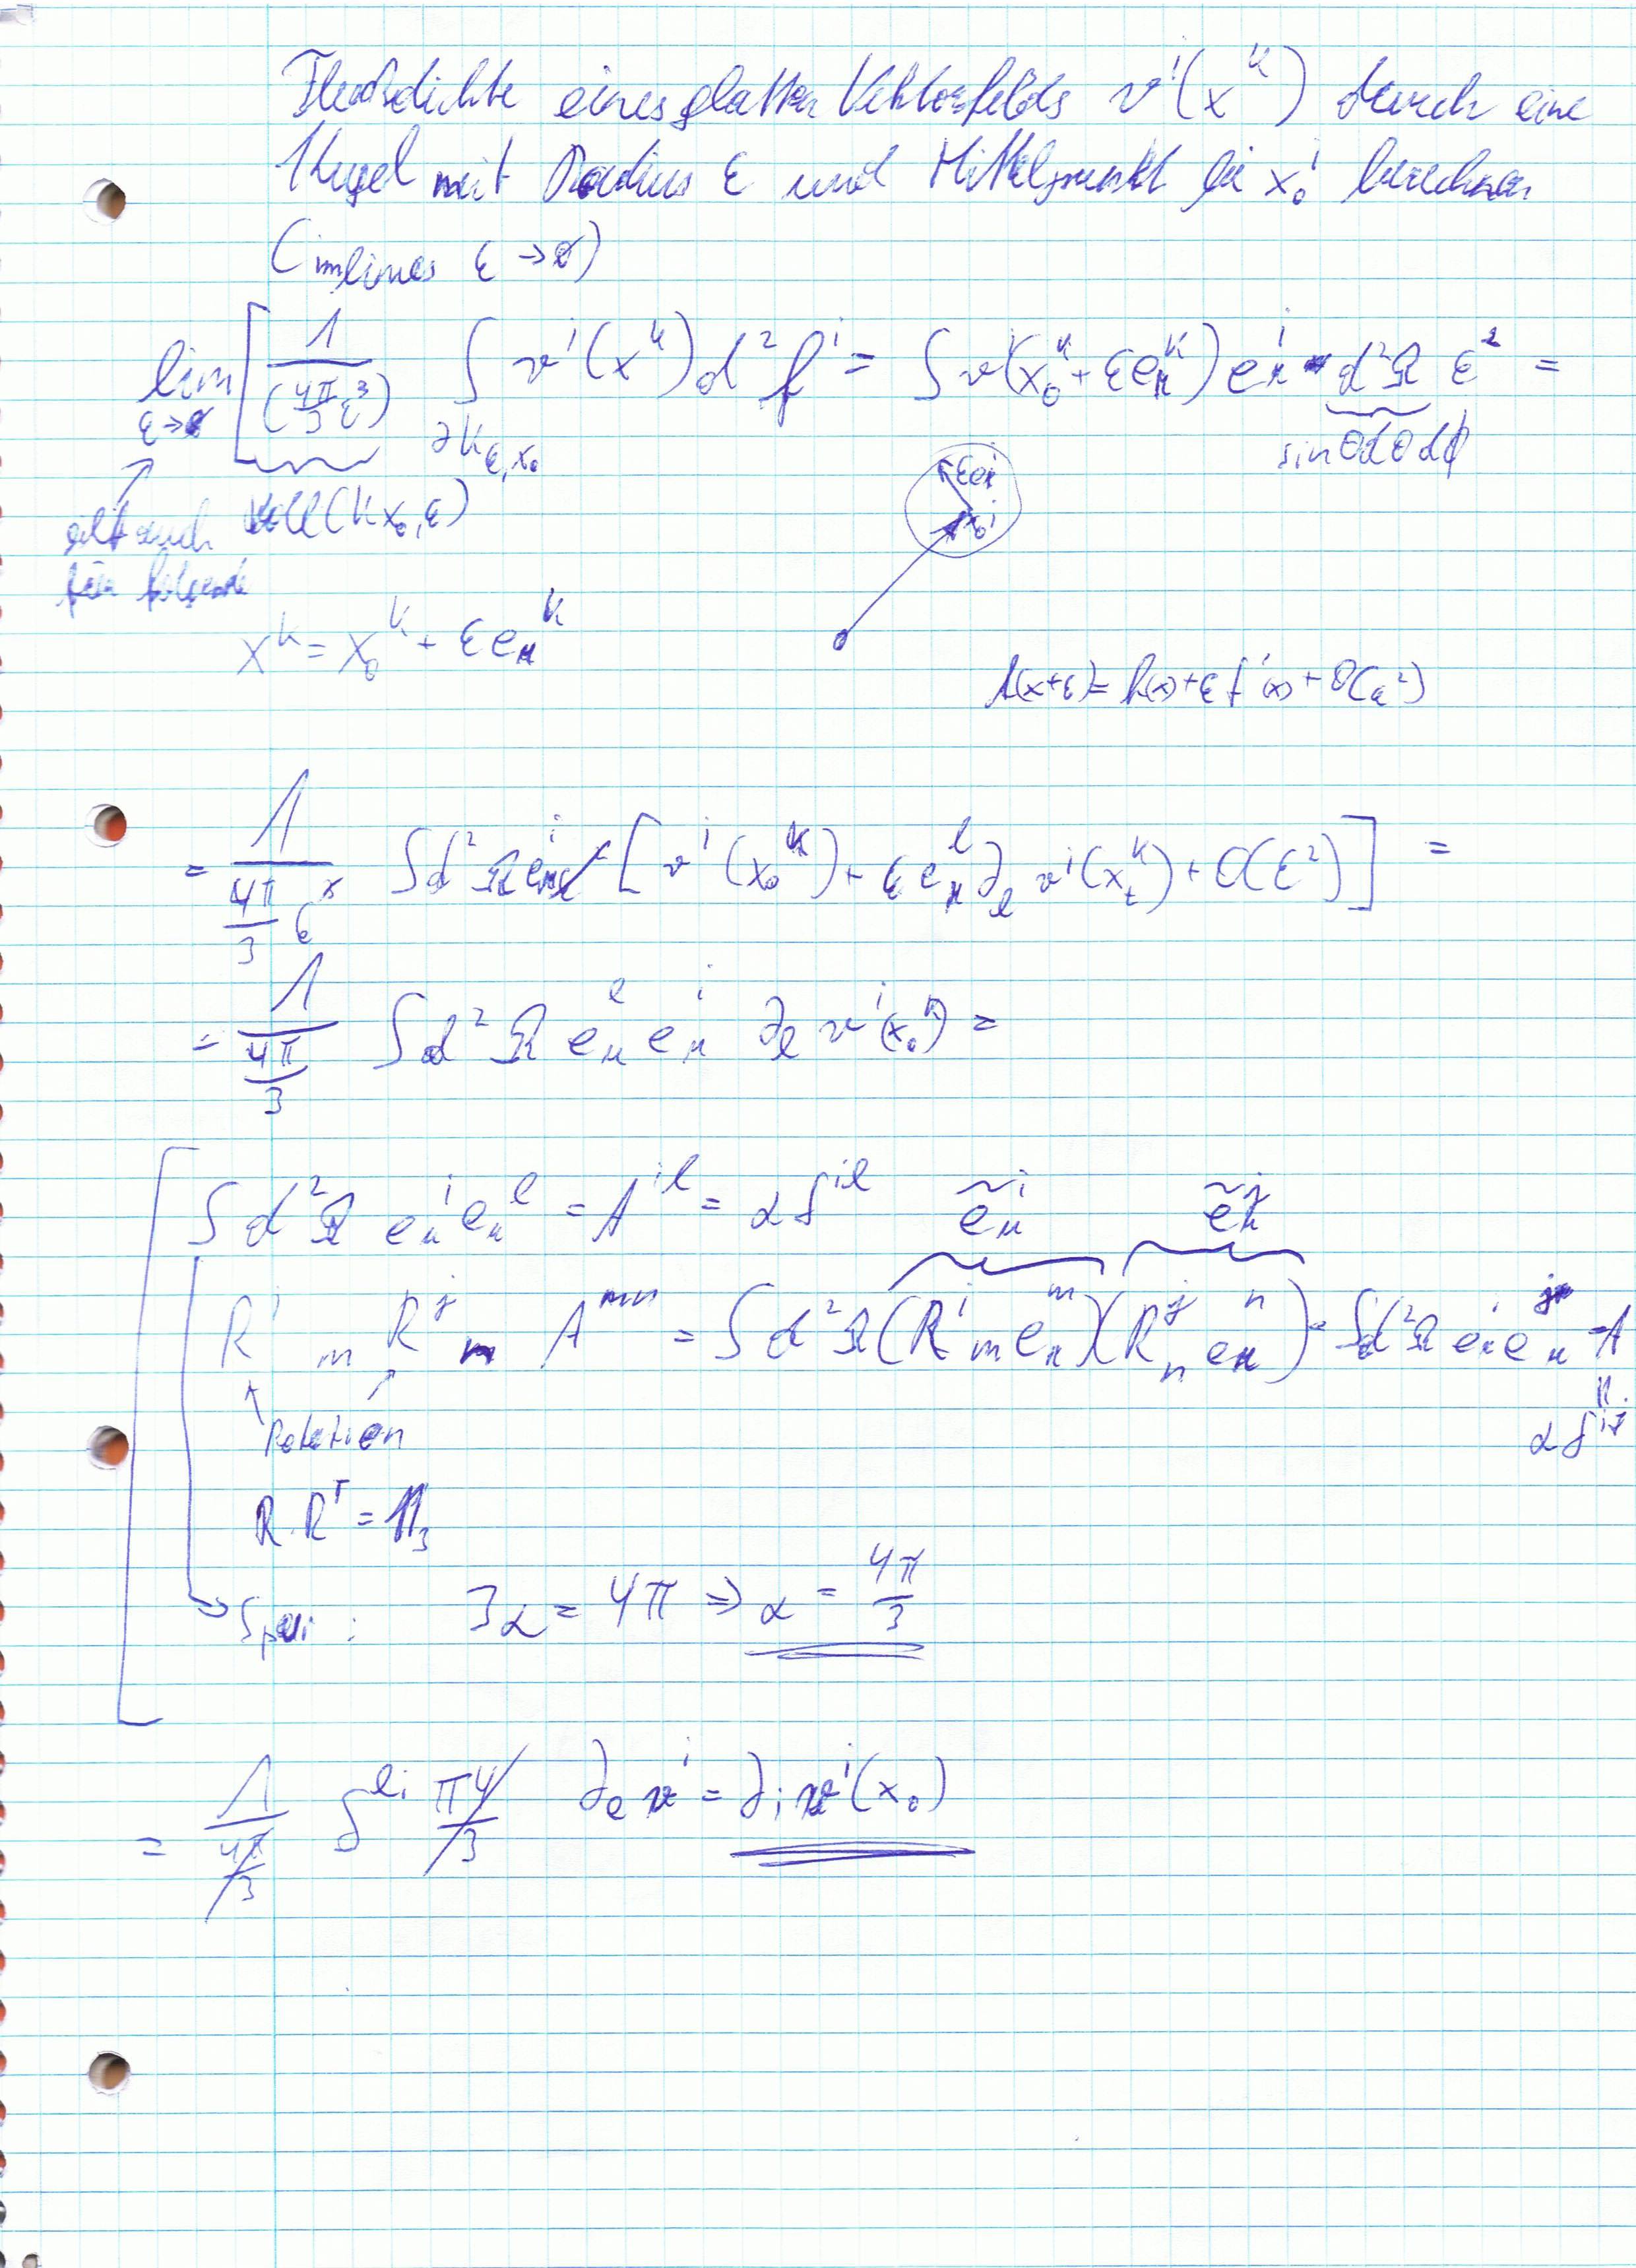 Flussdichte eines glatten Vektorfelds vⁱ(xᵏ) durch eine
Kugel mit Radius ε und Mittelpunkt bei x₀ⁱ berechnen
(im limes ε → 0)
lim ε→0 [ 1/(4π/3 ε³) ∫_{∂K_{ε,x₀}} vⁱ(xᵏ) d²fⁱ = ∫ v(x₀ᵏ + εeᵣᵏ) eᵣⁱ d²Ω ε² =
sinθdθdϕ
gilt auch für folgende
Vol(K_{x₀,ε})
εeᵣⁱ
x₀ⁱ
xᵏ = x₀ᵏ + εeᵣᵏ
f(x+ε) = f(x) + εf'(x) + O(ε²)
= 1/(4π/3 ε) ∫d²Ω eᵣⁱ [vⁱ(x₀ᵏ) + εeᵣˡ∂ₗvⁱ(x₀ᵏ) + O(ε²)] =
= 1/(4π/3) ∫d²Ω eᵣˡ eᵣⁱ ∂ₗvⁱ(x₀ᵏ) =
∫d²Ω eᵣⁱeᵣˡ = Aⁱˡ = αδⁱˡ ẽᵣⁱ ẽᵣʲ
Rⁱₘ Rʲₙ Aᵐⁿ = ∫d²Ω(Rⁱₘeᵣᵐ)(Rʲₙeᵣⁿ) = ∫d²Ω eᵣⁱeᵣʲ = A
Rotation
αδⁱʲ
R Rᵀ = 𝟙₃
Spur: 3α = 4π ⇒ α = 4π/3
= 1/(4π/3) δˡⁱ π4/3 ∂ₗvⁱ = ∂ᵢvⁱ(x₀)